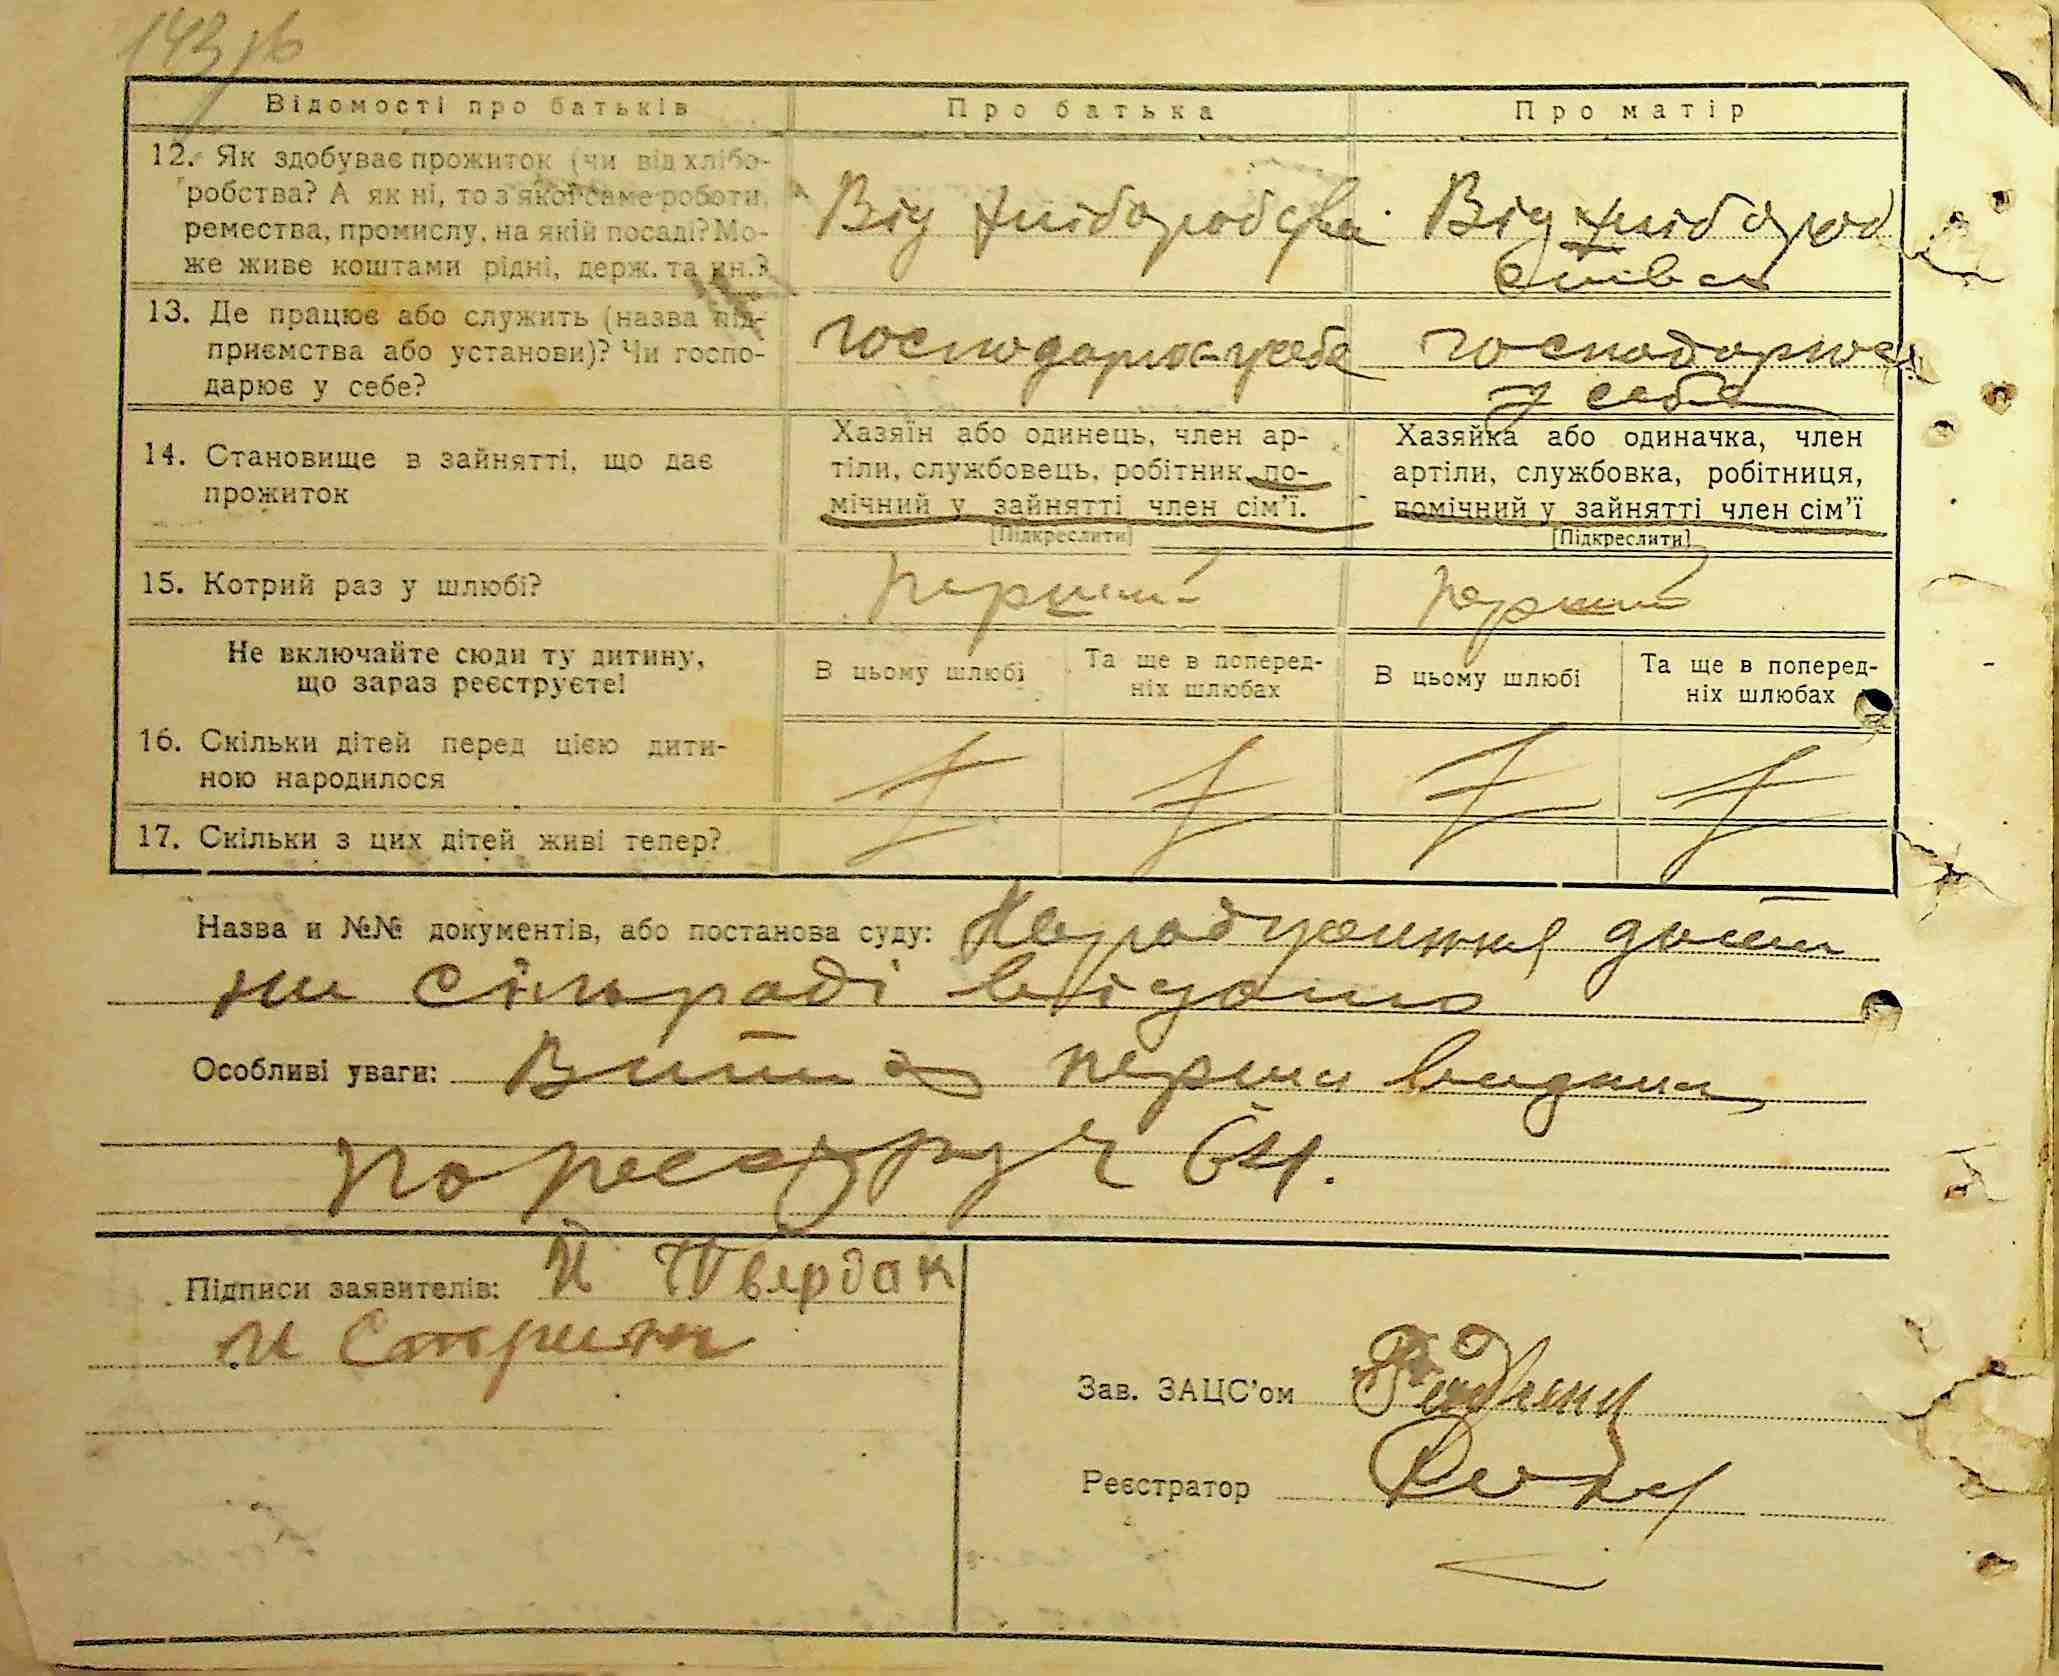 143 зв
Відомості про батьків
Про батька
Про матір
12. Як здобуває прожиток (чи від хлібо-
робства? А як ні, то з якої саме роботи,
ремества, промислу, на якій посаді? Мо-
же живе коштами рідні, держ. та ин.?
Від хліборобства
Від хлібороб
ства
13. Де працює або служить (назва під-
приємства або установи)? Чи госпо-
дарює у себе?
господарює у себе
господарює
у себе
14. Становище в зайнятті, що дає
прожиток
Хазяїн або одинець, член ар-
тіли, службовець, робітник, по-
мічний у зайнятті член сім’ї.
[Підкреслити]
Хазяйка або одиначка, член
артіли, службовка, робітниця,
помічний у зайнятті член сім’ї
[Підкреслити]
15. Котрий раз у шлюбі?
перший
перший
Не включайте сюди ту дитину,
що зараз реєструєте!
В цьому шлюбі
Та ще в поперед-
ніх шлюбах
В цьому шлюбі
Та ще в поперед-
ніх шлюбах
16. Скільки дітей перед цією дити-
ною народилося
17. Скільки з цих дітей живі тепер?
Назва и №№ документів, або постанова суду: Народження дити
ни сільраді відомо
Особливі уваги: перша видана
по реєстру ч 64.
Підписи заявителів: Й Твердак
и
Зав. ЗАЦС’ом
Реєстратор